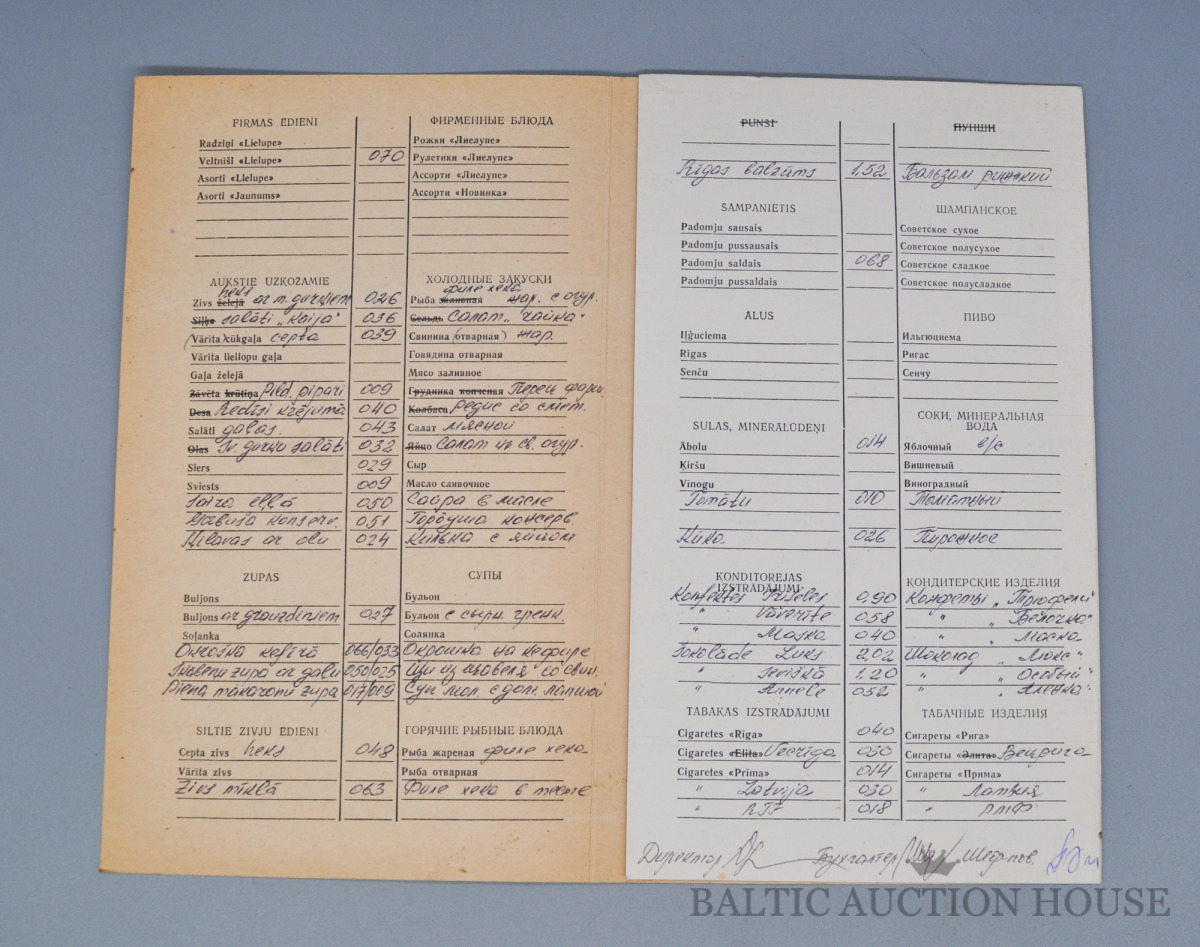 FIRMAS ĒDIENI ФИРМЕННЫЕ БЛЮДА
Radziņi «Lielupe» Рожки «Лиелупе»
Veltnīši «Lielupe» 070 Рулетики «Лиелупе»
Asorti «Lielupe» Ассорти «Лиелупе»
Asorti «Jaunums» Ассорти «Новинка»
AUKSTIE UZKOŽAMIE ХОЛОДНЫЕ ЗАКУСКИ
heks филе хека
Zivs želejā ar m. gurķiem 026 Рыба заливная жар. с огур.
Siļķe salāti „Kaija" 036 Сельдь Салат „Чайка"
(Vārīta) cūkgaļa cepta 039 Свинина (отварная) жар.
Vārīta liellopu gaļa Говядина отварная
Gaļa želejā Мясо заливное
Žāvēta krūtiņa Pild. pipari 009 Грудника копченая Перец фарш.
Desa Redīsi krējumā 040 Колбаса редис со смет.
Salāti gaļas. 043 Салат мясной
Olas Sv. gurķu salāti 032 Яйцо Салат из св. огур.
Siers 029 Сыр
Sviests 009 Масло сливочное
Saira eļļā 050 Сайра в масле
Gorbuša konserv. 051 Горбуша консерв.
Ķilavas ar olu 024 Килька с яйцом
ZUPAS СУПЫ
Buljons Бульон
Buljons ar grauzdiņiem 027 Бульон с сырн. гренк.
Soļanka Солянка
Okroška kefīrā 066/033 Окрошка на кефире
Skābeņu zupa ar gaļu 050/025 Щи из щавеля со свин.
Piena makaronu zupa 017/009 Суп мол. с дом. лапшой
SILTIE ZIVJU ĒDIENI ГОРЯЧИЕ РЫБНЫЕ БЛЮДА
Cepta zivs heks 048 Рыба жареная филе хека
Vārīta zivs Рыба отварная
Zivs mīklā 063 Филе хека в тесте
PUNŠI ПУНШИ
Rīgas balzāms 1,52 Бальзам рижский
ŠAMPANIETIS ШАМПАНСКОЕ
Padomju sausais Советское сухое
Padomju pussausais Советское полусухое
Padomju saldais 068 Советское сладкое
Padomju pussaldais Советское полусладкое
ALUS ПИВО
Iļģuciema Ильгюциема
Rīgas Ригас
Senču Сенчу
SULAS, MINERĀLŪDEŅI СОКИ, МИНЕРАЛЬНАЯ ВОДА
Ābolu 014 Яблочный
Ķiršu Вишневый
Vīnogu Виноградный
Tomātu 010 Томатный
Kūka. 026 Пирожное
KONDITOREJAS IZSTRĀDĀJUMI КОНДИТЕРСКИЕ ИЗДЕЛИЯ
Konfektes Trifeles 0,90 Конфеты „Трюфели"
" Vāverīte 058 " „Белочка"
" Maska 040 " „Маска
Šokolāde Luks 2,02 Шоколад „Люкс"
" Sevišķā 1,20 " „Особый"
" Annele 052 " „Аленка"
TABAKAS IZSTRĀDĀJUMI ТАБАЧНЫЕ ИЗДЕЛИЯ
Cigaretes «Rīga» 040 Сигареты «Рига»
Cigaretes «Elita» Vecrīga 050 Сигареты «Элита» Вецрига
Cigaretes «Prīma» 014 Сигареты «Прима»
" Latvija 030 " Латвия
" RTF 018 " РТФ
Директор Бухгалтер
BALTIC AUCTION HOUSE